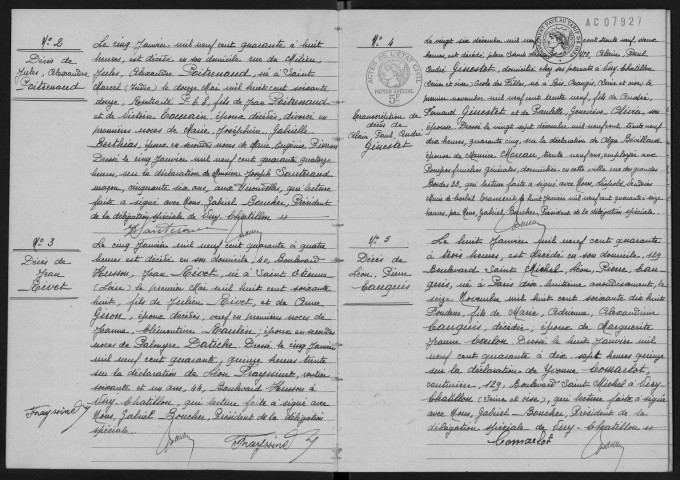 N° 2
Décès de
Jules, Alexandre
Poitrenaud
Le cinq Janvier mil neuf cent quarante à huit
heures, est décédé en son domicile rue du
Jules, Alexandre Poitrenaud, né à Saint
Marcel (Indre) le douze Mai mil huit cent soixante
douze, Retraité P.L.M, fils de Jean Poitrenaud
et de Victoire époux décédés, divorcé en
premières noces de Marie, Joséphine, Gabrielle
Berthias, époux en secondes noces de Marie, Eugénie
Dressé le cinq Janvier mil neuf cent quarante quatorze
heures, sur la déclaration de Monsieur Joseph Sautereau
maçon, cinquante six ans, aux qui lecture
faite a signé avec Nous, Gabriel Boucher, Président
de la délégation spéciale de Viry-Chatillon
N° 3
Décès de
Jean
Rivet
Le cinq Janvier mil neuf cent quarante à quatre
heures est décédé en son domicile, 42, Boulevard
Husson, Jean Rivet, né à Saint Etienne
(Loire) le premier Mai mil huit cent soixante
huit, fils de Julien Rivet, et de Anne
Giron, époux décédés, veuf en premières noces de
Jeanne Clémentine époux en secondes
noces de Palmyre Dressé le cinq Janvier
mil neuf cent quarante, quinze heures trente
sur la déclaration de Léon Frayssinet, rentier
soixante et un ans, 44, Boulevard Husson à
Viry-Chatillon, qui lecture faite a signé avec
Nous, Gabriel Boucher, Président de la délégation
spéciale.
AC 07927
N° 4
ACTES DE L'ÉTAT CIVIL
PAPIER SPÉCIAL
5F
Transcription de
décès de
Alain, Paul, André
Ginestet
Le vingt six décembre mil neuf cent trente neuf, deux
heures, est décédé place Alain, Paul
André Ginestet, domicilié chez ses parents à Viry Chatillon
(Seine et Oise) Ecole des Filles, né à Seine et Oise le
premier novembre mil neuf cent trente neuf, fils de André,
Fernand Ginestet et de Paulette, Geneviève, son
épouse. Dressé le vingt sept décembre mil neuf cent trente neuf
dix heures, quarante cinq, sur la déclaration de Olga
épouse de Maurice Moreau, trente neuf ans, employée aux
Pompes funèbres générales, domiciliée en cette ville rue des grandes
Bordes 23, qui lecture faite a signé avec Nous, Léopold
Transcrit le huit Janvier mil neuf cent quarante seize
heures, par Nous, Gabriel Boucher, Président de la délégation spéciale.
N° 5
Décès de
Léon, Pierre
Canguis
Le huit Janvier mil neuf cent quarante
à trois heures, est décédé en son domicile, 129
Boulevard Saint Michel, Léon, Pierre, Can-
guis, né à Paris dix huitième arrondissement, le
seize Novembre mil huit cent soixante dix huit
fils de Marie, Adrienne, Alexandrine
Canguis, décédée, époux de Marguerite
Jeanne Carlon. Dressé le huit Janvier mil
neuf cent quarante à dix sept heures quinze
sur la déclaration de Yvonne Comarlot,
couturière, 129, Boulevard Saint Michel à Viry-
Chatillon (Seine et Oise), qui lecture faite a signé
avec Nous, Gabriel Boucher, Président de la
délégation spéciale de Viry-Chatillon
Comarlot